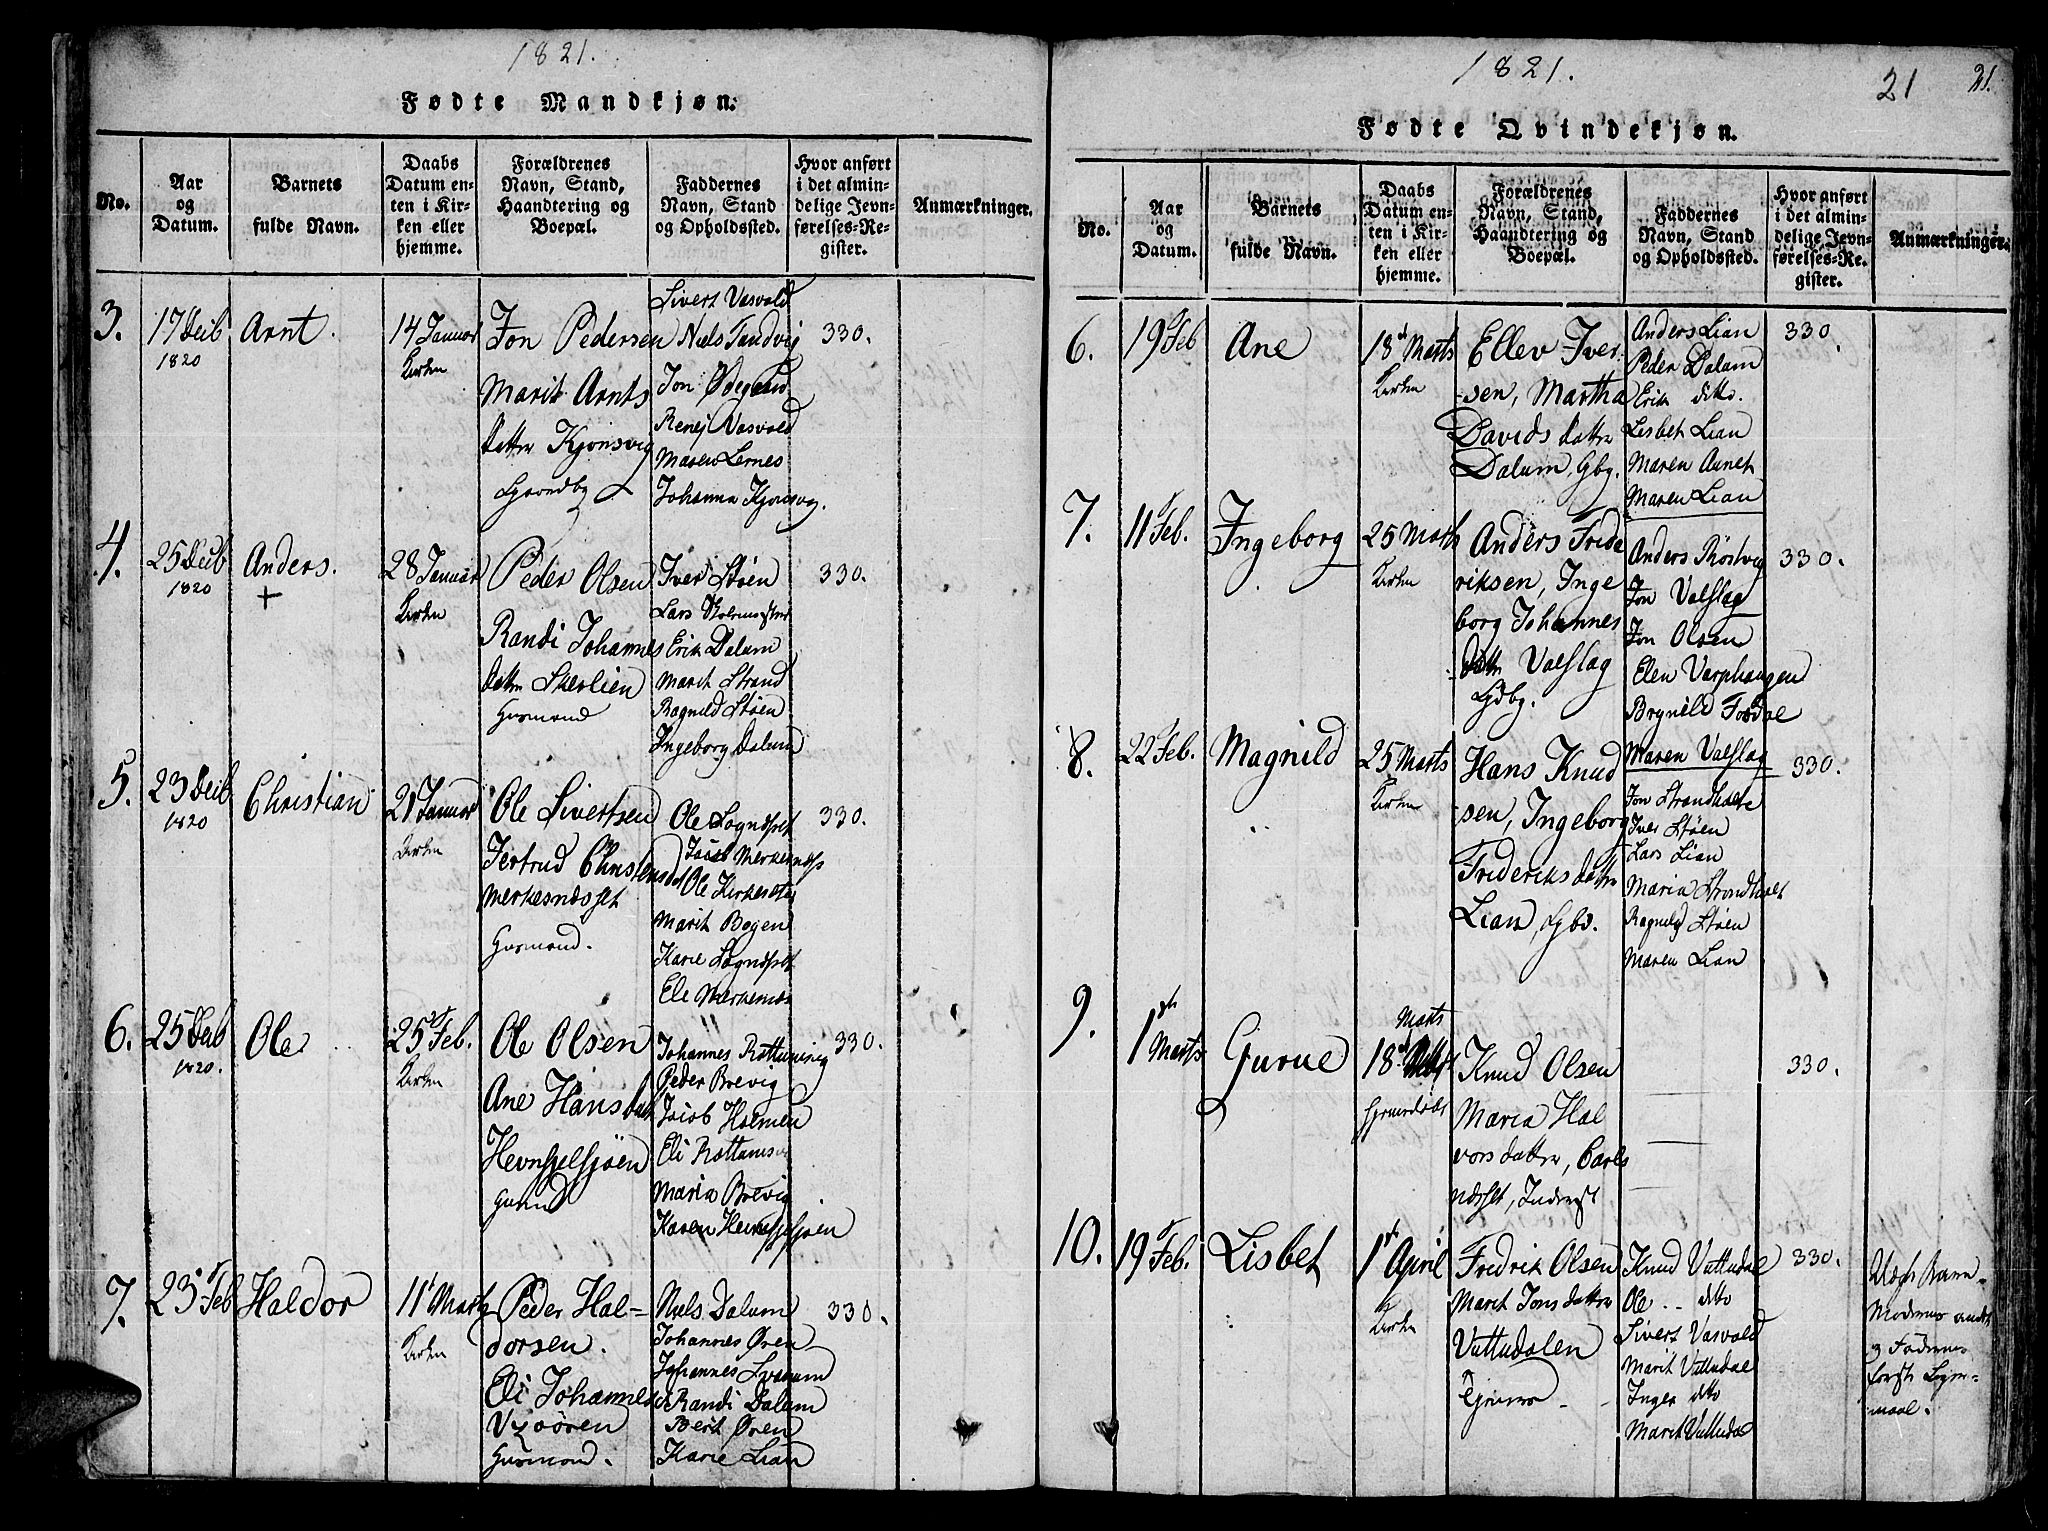 1821.
Fødte Mandkjøn.
No.
Aar
og
Datum.
Barnets
fulde Navn.
Daabs
Datum en-
ten i Kir-
ken eller
hjemme.
Forældrenes
Navn, Stand,
Haandtering og
Boepæl.
Faddernes
Navn, Stand
og Opholdssted.
Hvor anført
i det almin-
delige Jevn-
førelses-Re-
gister.
Anmærkninger.
3.
17 Decb
1820
Arnt.
14 Januar
Kirken
Jon Pedersen
Marit Arnts
datter Kjønsvig
Sivert Vasvold
Niels Sandvig
Jon Ødegaard
Renej Vasvold
Maren Lernes
Johanna Kjønsvg.
330.
4.
25 Decb
1820
Anders.
+
28 Januar
Kirken
Peder Olsen
Randi Johannes
datter Skerlien
Huusmand
Iver Støen
Lars
Erik Dalum
Marit Strand
Ragnild Støen
Ingeborg Dalum
330.
5.
23 Decb
1820
Christian
21 Januar
Kirken
Ole Sivertsen
Jertrud Christensdat
Merkesnæsset
Huusmand.
Ole Sognæsset
Jacob Merkesnæss
Ole Kirkesæter
Marit Bogen
Karie Sognæsset
Eli Merkesnæs
330.
6.
25 Decb
1820.
Ole
25 Feb.
Kirken
Ole Olsen
Ane Hansdatr
Hevnskjelsjøen
Johannes Rottumsvig
Peder Brevig
Jacob Holmen
Eli Rottumsv
Maria Brevig
Karen Hevnskjelsjøen
330.
7.
23 Feb
Haldor
11 Martz
Kirken
Peder Hal-
dorsen.
Eli Johannesd
Huusmand.
Niels Dalum
Johannes Øren
Johannes Svanum
Randi Dalum
Berit Øren
Karie Lian
330.
1821.
21
21.
Fødte Qvindekjøn.
No.
Aar
og
Datum.
Barnets
fulde Navn.
Daabs
Datum en-
ten i Kir-
ken eller
hjemme.
Forældrenes
Navn, Stand,
Haandtering og
Boepæl.
Faddernes
Navn, Stand
og Opholdssted.
Hvor anført
i det almin-
delige Jevn-
førelses-Re-
gister.
Anmærkninger.
6.
19 Feb
Ane
18 Marts
Kirken
Ellev Iver-
sen, Martha
Davids datter
Dalum, Gbg.
Anders Lian
Peder Dalum
Erik ditto.
Lisbet Lian
Maren Aunet
Maren Lian
330.
7.
11 Feb.
Ingeborg
25 Marts
Kirken
Anders Fride
riksen, Inge
borg Johannes
datter Valslag
Anders Røstvig
Jon Valslag
Jon Olsen
Elen Varphaugen
Brynild Fosdal
Maren Valslag
330.
8.
22 Feb.
Magnild
25 Marts
Kirken
Hans Knud
sen, Ingeborg
Frideriks datter
Lian,
Jon Strandholt
Iver Støen
Lars Lian
Maria Strandholt
Ragnild Støen
Maren Lian
330.
9.
1ste
Marts
Gurue
Marts
18
Hjemmedøbt
Knud Olsen
Maria Hal
vors datter, Carls
næsset, Inderst
330.
10.
19 Feb.
Lisbet
1 April
Kirken
Fredrik Olsen
Marit Jons datter
Vuttudalen
Knud Vuttudal
Ole ditto
Sivert Vasvold
Marit Vuttudal
Inger ditto
Marit Vuttudal
330.
Uægte Barn
Moderens andet
og Faderens
første Leyer-
maal.